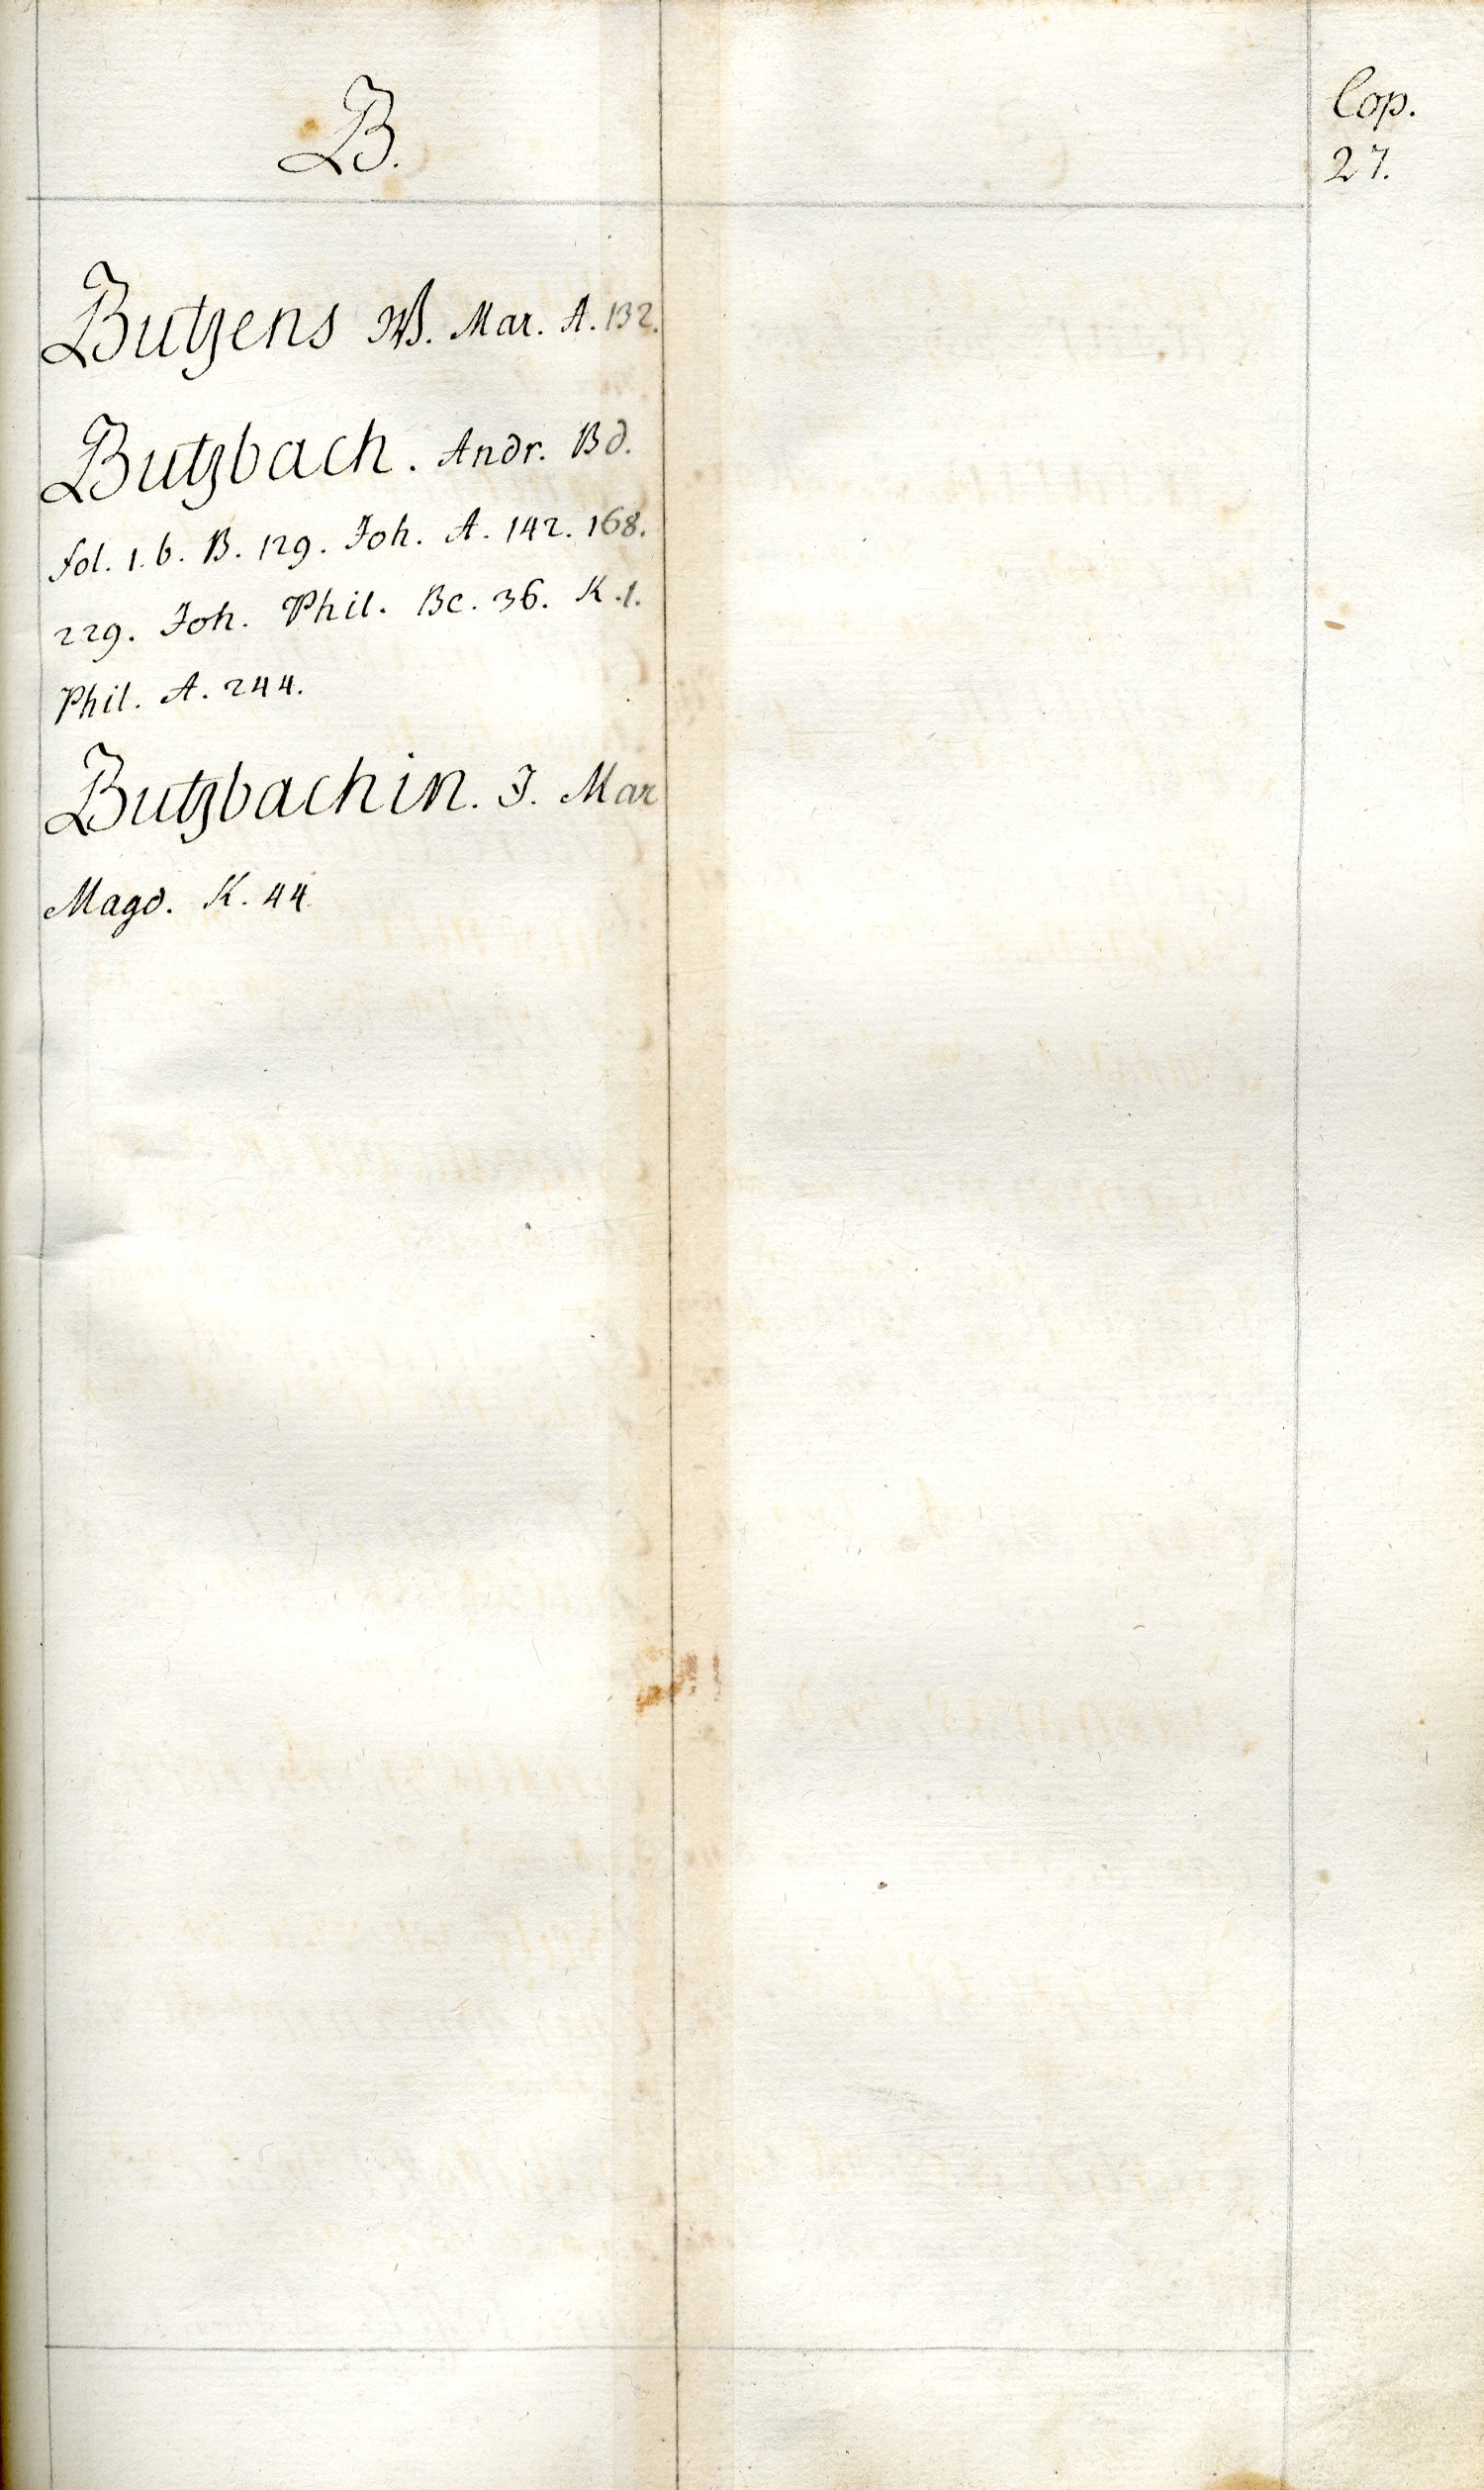 B.
Cop.
27.
Butzens W. Mar. A. 132.
Butzbach. Andr. Bd.
fol. 1. b. B. 129. Joh. A. 142. 168.
229. Joh. Phil. Bc. 36. K. 1.
Phil. A. 244.
Butzbachin. J. Mar
Magd. K. 44.